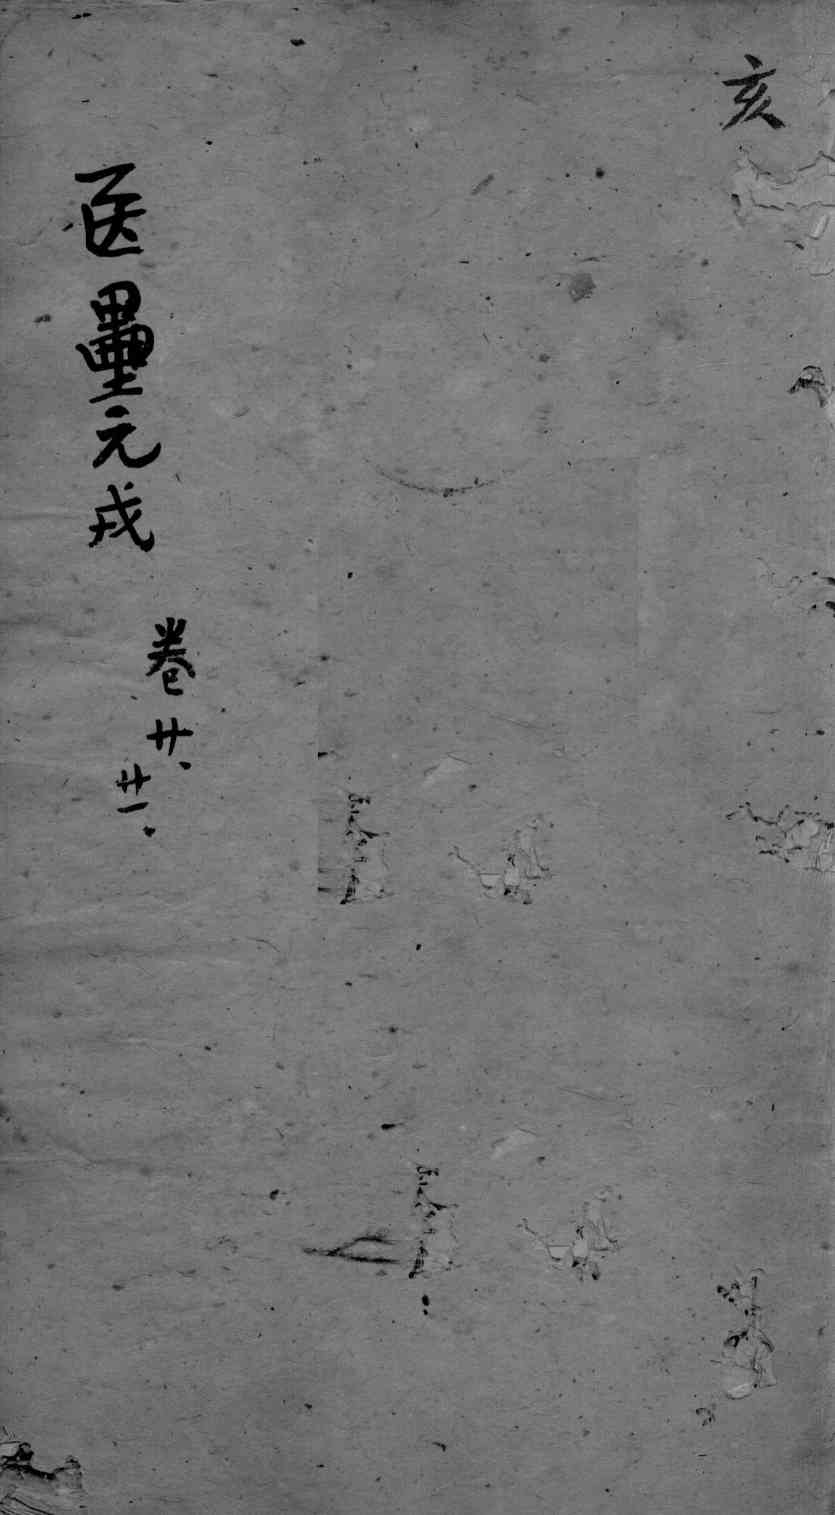 亥
医壘元戎
卷廿、
廿一、